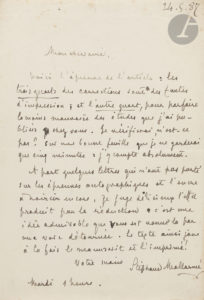 24.5.87
Mon cher ami,
Voici l'épreuve de l'article : les
trois quarts des corrections sont des fautes
d'impression ; et l'autre quart, pour parfaire
la moins mauvaise des études que j'ai pu-
bliées chez vous. Je vérifierai, n'est-ce
pas ? sur une bonne feuille que je ne garderai
que cinq minutes : j'y compte absolument.
A part quelques lettres qui n'ont pas porté
sur les épreuves autographiques et l'encre
à noircir encore, je juge l'effet
produit par la réduction : c'est une
idée admirable que vous
Le texte ainsi
à la fois le manuscrit et l'imprimé.
Votre main
Stéphane Mallarmé
Mardi heures.